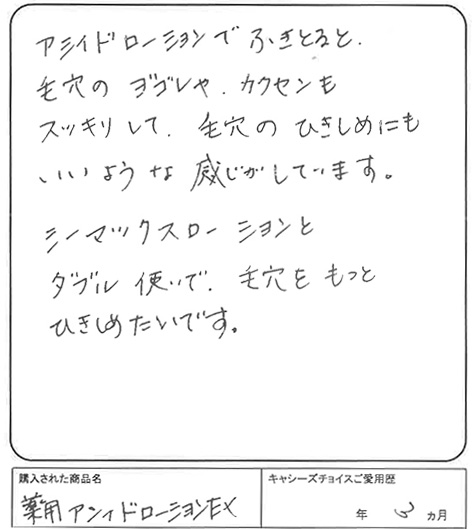 アシイドローションで ふきとると、
毛穴の ヨゴレや、カクセンも
スッキリして、毛穴の ひきしめにも
いいような 感じがしています。
シーマックスローションと
ダブル 使いで、毛穴を もっと
ひきしめたいです。
購入された商品名
薬用 アシィドローションEX
キャシーズチョイスご愛用歴
年 3 ヵ月